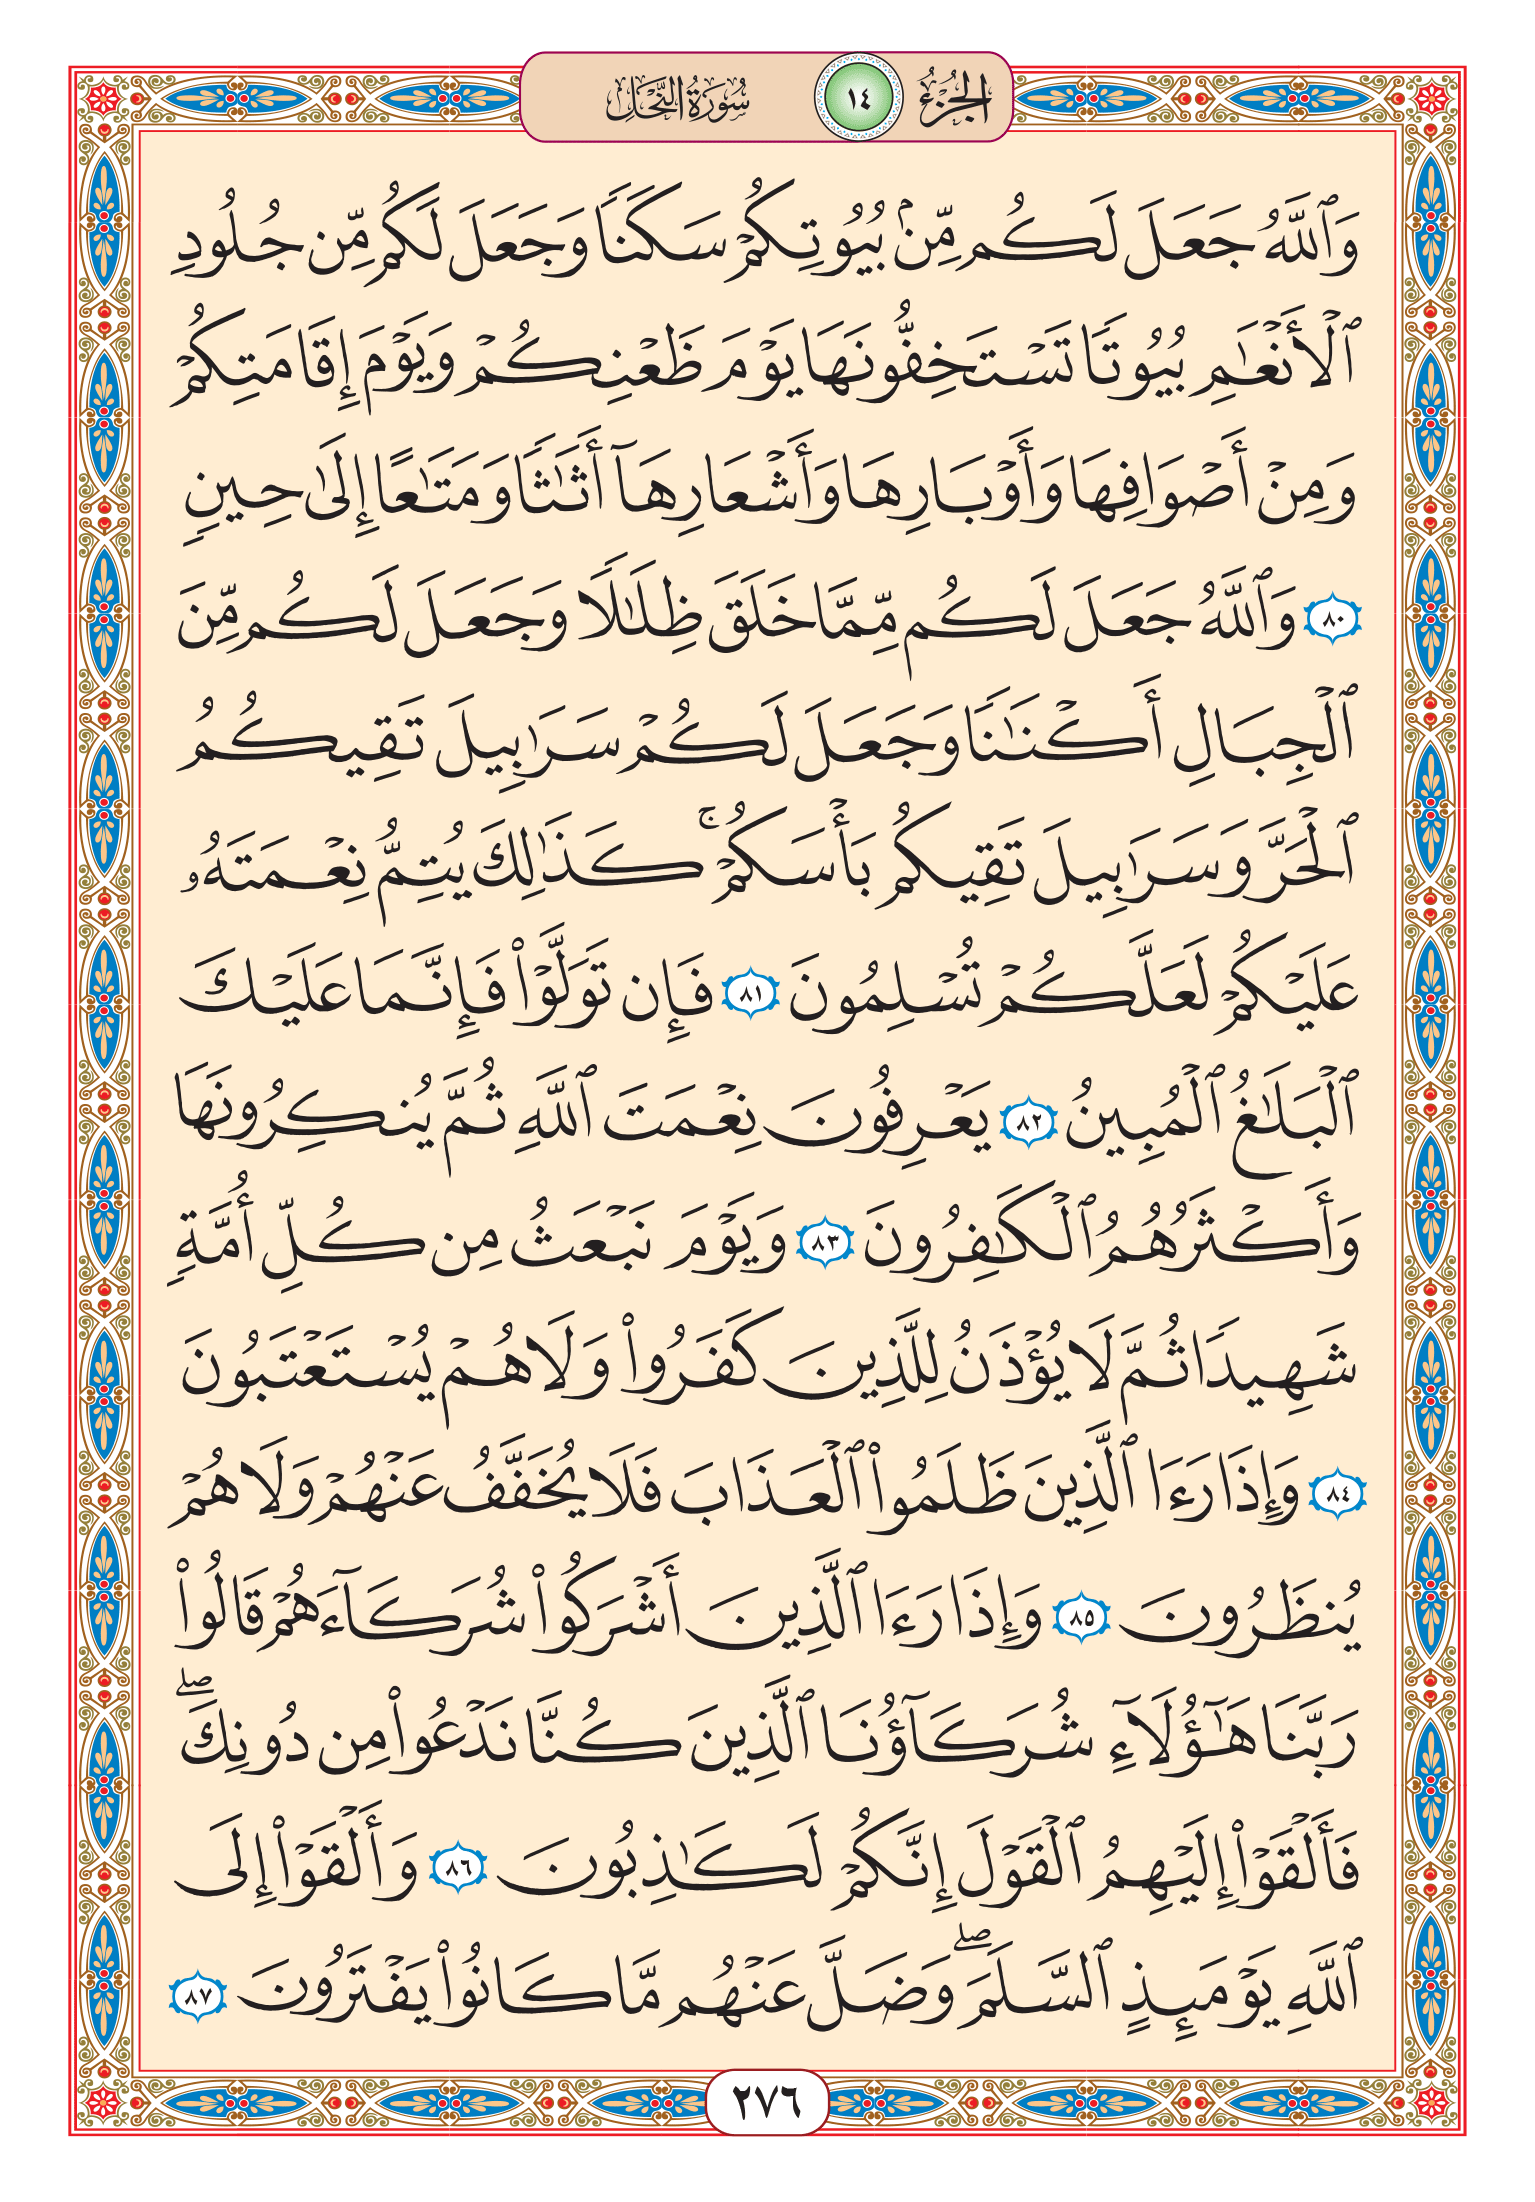 الجزء ١٤ سورة النحل
وَٱللَّهُ جَعَلَ لَكُم مِّنۢ بُيُوتِكُمْ سَكَنًا وَجَعَلَ لَكُم مِّن جُلُودِ
ٱلْأَنْعَٰمِ بُيُوتًا تَسْتَخِفُّونَهَا يَوْمَ ظَعْنِكُمْ وَيَوْمَ إِقَامَتِكُمْ
وَمِنْ أَصْوَافِهَا وَأَوْبَارِهَا وَأَشْعَارِهَآ أَثَٰثًا وَمَتَٰعًا إِلَىٰ حِينٍ
٨٠ وَٱللَّهُ جَعَلَ لَكُم مِّمَّا خَلَقَ ظِلَٰلًا وَجَعَلَ لَكُم مِّنَ
ٱلْجِبَالِ أَكْنَٰنًا وَجَعَلَ لَكُمْ سَرَٰبِيلَ تَقِيكُمُ
ٱلْحَرَّ وَسَرَٰبِيلَ تَقِيكُم بَأْسَكُمْ ۚ كَذَٰلِكَ يُتِمُّ نِعْمَتَهُۥ
عَلَيْكُمْ لَعَلَّكُمْ تُسْلِمُونَ ٨١ فَإِن تَوَلَّوْا۟ فَإِنَّمَا عَلَيْكَ
ٱلْبَلَٰغُ ٱلْمُبِينُ ٨٢ يَعْرِفُونَ نِعْمَتَ ٱللَّهِ ثُمَّ يُنكِرُونَهَا
وَأَكْثَرُهُمُ ٱلْكَٰفِرُونَ ٨٣ وَيَوْمَ نَبْعَثُ مِن كُلِّ أُمَّةٍ
شَهِيدًا ثُمَّ لَا يُؤْذَنُ لِلَّذِينَ كَفَرُوا۟ وَلَا هُمْ يُسْتَعْتَبُونَ
٨٤ وَإِذَا رَءَا ٱلَّذِينَ ظَلَمُوا۟ ٱلْعَذَابَ فَلَا يُخَفَّفُ عَنْهُمْ وَلَا هُمْ
يُنظَرُونَ ٨٥ وَإِذَا رَءَا ٱلَّذِينَ أَشْرَكُوا۟ شُرَكَآءَهُمْ قَالُوا۟
رَبَّنَا هَٰٓؤُلَآءِ شُرَكَآؤُنَا ٱلَّذِينَ كُنَّا نَدْعُوا۟ مِن دُونِكَ ۖ
فَأَلْقَوْا۟ إِلَيْهِمُ ٱلْقَوْلَ إِنَّكُمْ لَكَٰذِبُونَ ٨٦ وَأَلْقَوْا۟ إِلَى
ٱللَّهِ يَوْمَئِذٍ ٱلسَّلَمَ ۖ وَضَلَّ عَنْهُم مَّا كَانُوا۟ يَفْتَرُونَ ٨٧
٢٧٦